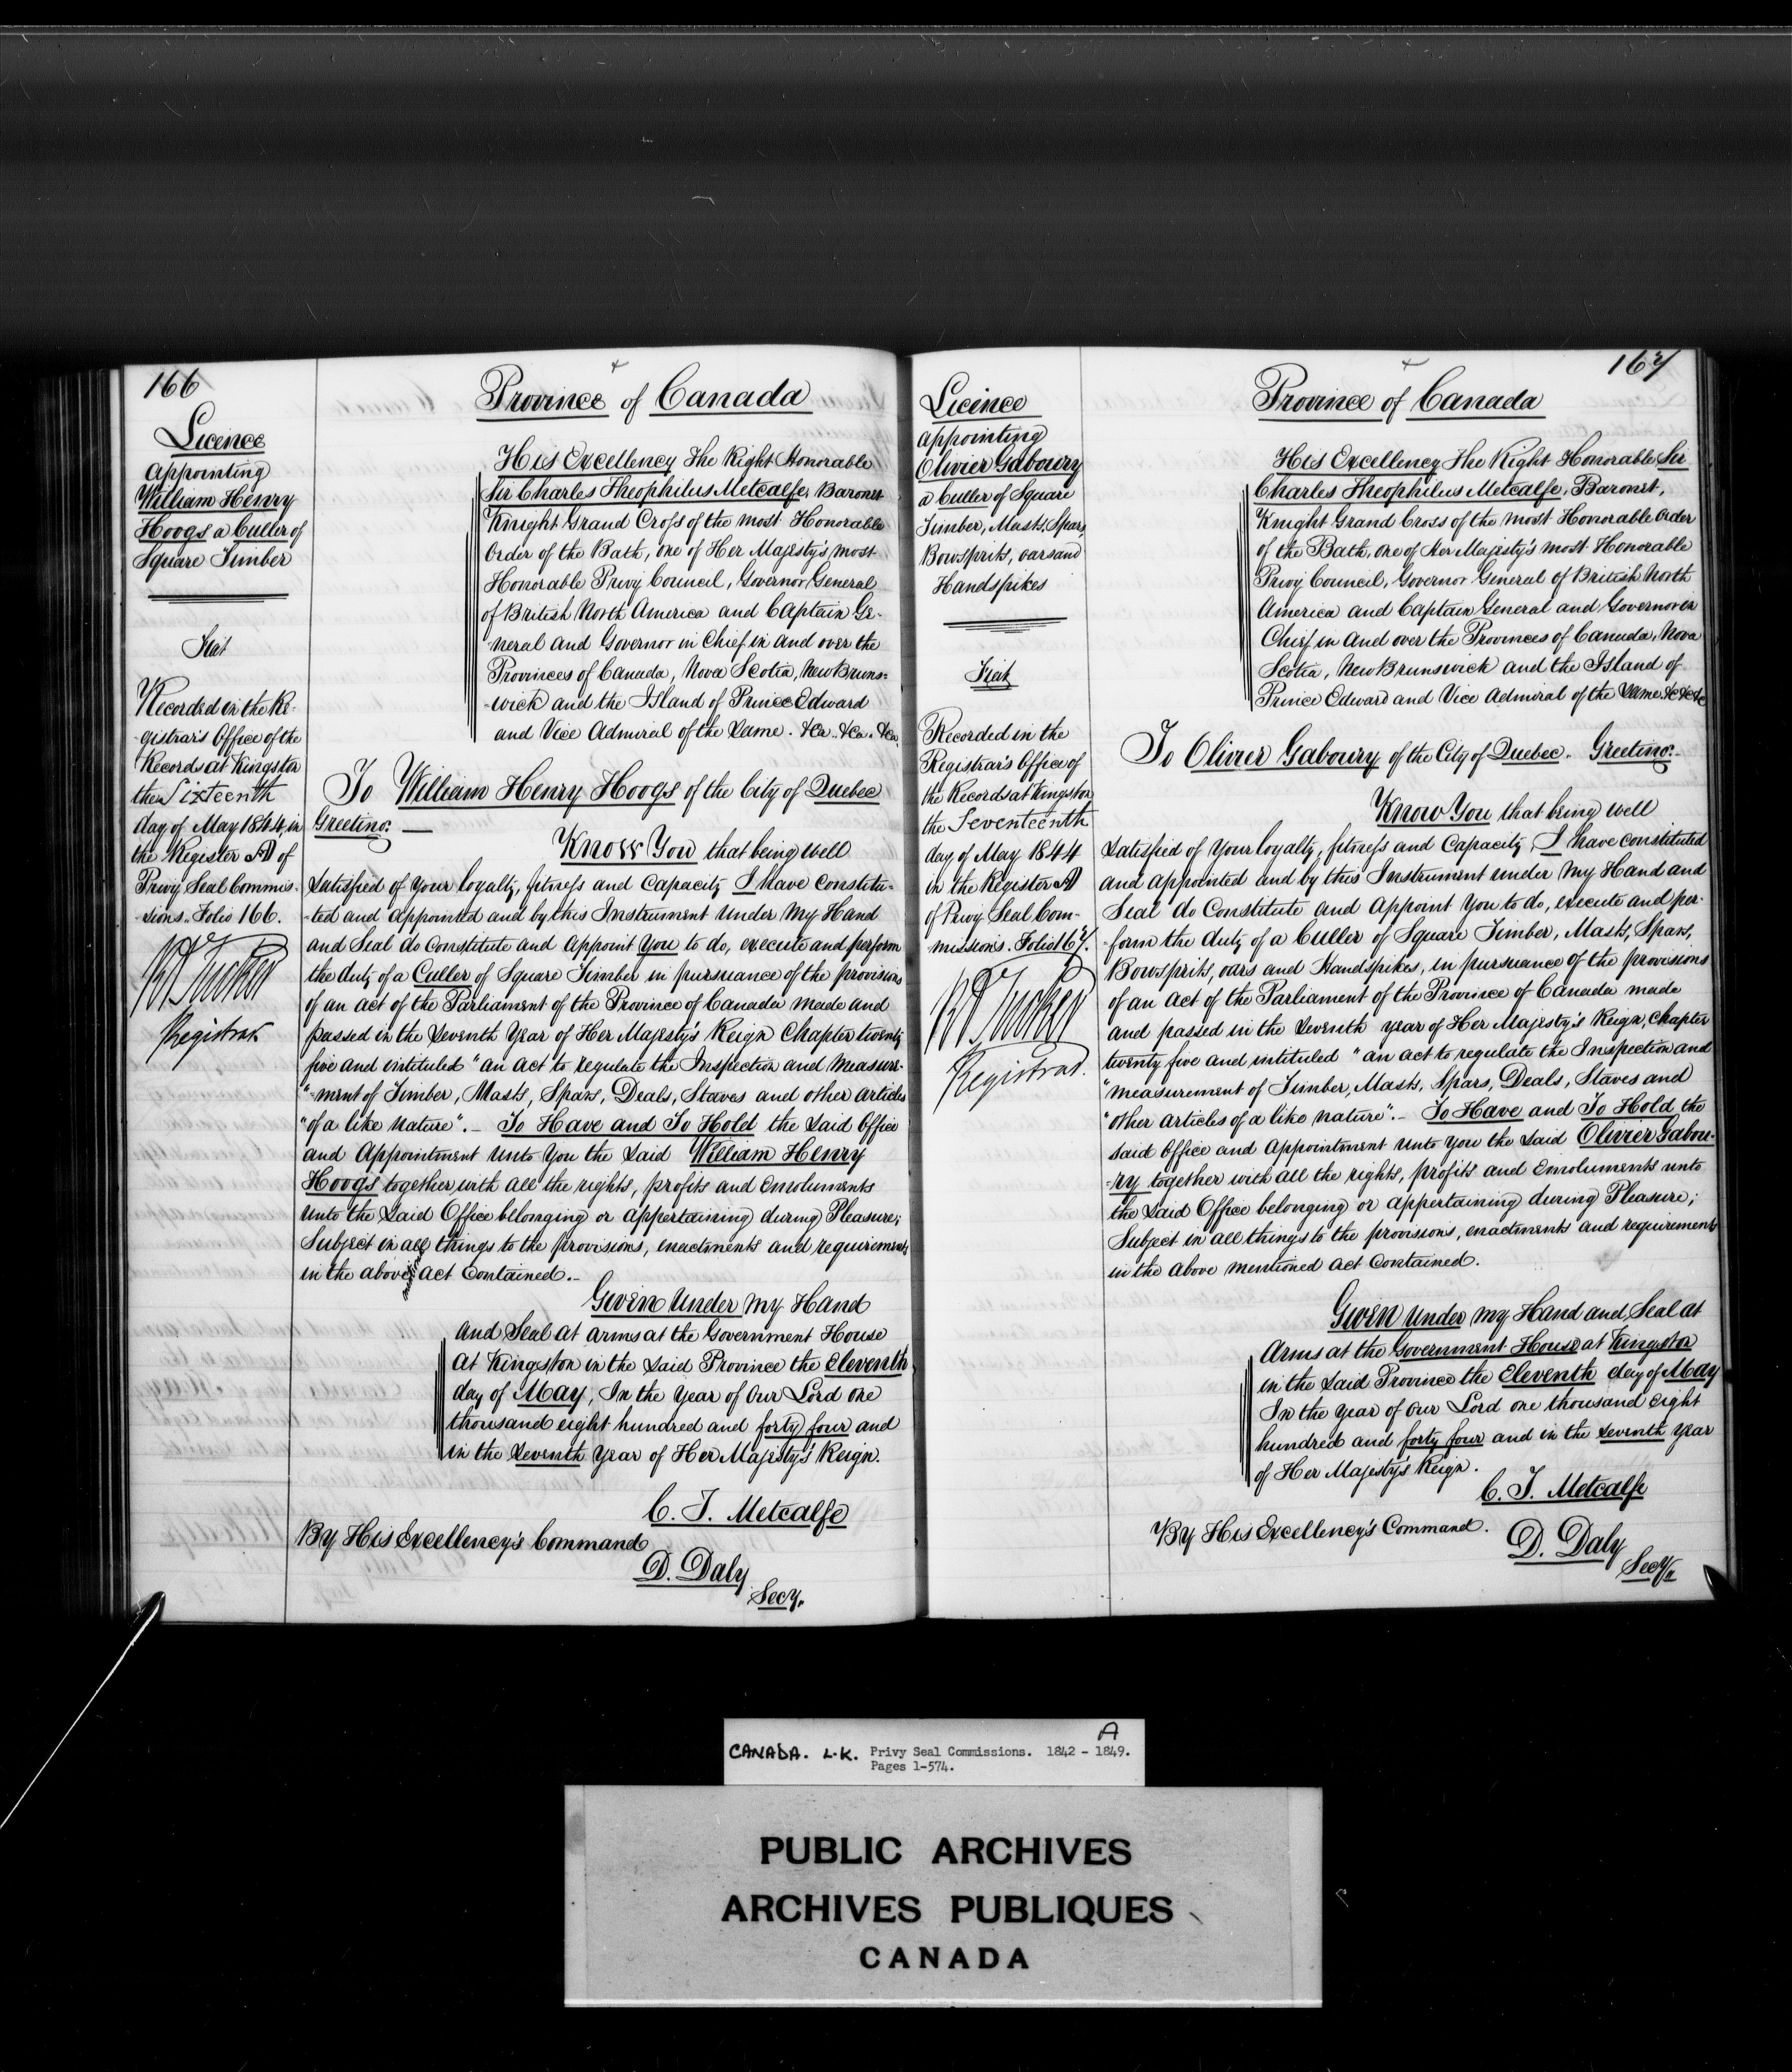 166
Licence
appointing
William Henry
Hoogs a Culler of
Square Timber
Fiat
Recorded in the Re-
gistrar's Office of the
Records at Kingston
the Sixteenth
day of May 1844, in
the Register A of
Privy Seal Commis-
-sions. Folio 166.
RA Tucker
Registrar
Province of Canada
His Excellency The Right Honorable
Sir Charles Theophilus Metcalfe, Baronet
Knight Grand Cross of the most Honorable
Order of the Bath, one of Her Majesty's most
Honorable Privy Council, Governor General
of British North America and Captain Ge-
neral and Governor in Chief in and over the
Provinces of Canada, Nova Scotia, New Bruns=
-wick and the Island of Prince Edward
and Vice Admiral of the Same. &ca.. &ca. &ca.
To William Henry Hoogs of the City of Quebec
Greeting: —
Know You that being well
Satisfied of your loyalty, fitness and Capacity I have Constitu-
-ted and appointed and by this Instrument under my Hand
and Seal do Constitute and Appoint You to do, execute and perform
the duty of a Culler of Square Timber in pursuance of the provisions
of an act of the Parliament of the Province of Canada made and
passed in the Seventh Year of Her Majesty's Reign Chapter twenty
five and intituled "an act to regulate the Inspection and Measure-
"-ment of Timber, Masts, Spars, Deals, Staves and other articles
"of a like nature". - To Have and To Hold the said Office
and Appointment unto You the Said William Henry
Hoogs together with all the rights, profits and emoluments
unto the Said Office belonging or appertaining during Pleasure;
Subject in all things to the provisions, enactments and requirements
in the above act Contained.-
Given Under my Hand
and Seal at arms at the Government House
at Kingston in the Said Province the Eleventh
day of May, In the Year of Our Lord one
thousand eight hundred and forty four and
in the Seventh Year of Her Majesty's Reign.
C. T. Metcalfe
By His Excellency's Command
D. Daly
Secy.
167
Licence
appointing
Olivier Gaboury
a Culler of Square
Timber, Masts, Spars,
Bowsprits, oars and
Handspikes
Fiat
Recorded in the
Registrar's Office of
the Records at Kingston
the Seventeenth
day of May 1844
in the Register A
of Privy Seal Com-
missions. Folio 167.
RA Tucker
Registrar.
Province of Canada
His Excellency The Right Honorable Sir
Charles Theophilus Metcalfe, Baronet,
Knight Grand Cross of the most Honorable Order
of the Bath, one of Her Majesty's most Honorable
Privy Council, Governor General of British North
America and Captain General and Governor in
Chief in and over the Provinces of Canada, Nova
Scotia, New Brunswick and the Island of
Prince Edward and Vice Admiral of the Same &c &c &c
To Olivier Gaboury of the City of Quebec. Greeting:-
Know You that being well
Satisfied of your loyalty, fitness and Capacity, I have constituted
and appointed and by this Instrument under my Hand and
Seal do Constitute and Appoint You to do, execute and per-
-form the duty of a Culler of Square Timber, Masts, Spars,
Bowsprits, oars and Handspikes, in pursuance of the provisions
of an act of the Parliament of the Province of Canada made
and passed in the Seventh year of Her Majesty's Reign, Chapter
twenty five and intituled "an act to regulate the Inspection and
"measurement of Timber, Masts, Spars, Deals, Staves and
"other articles of a like nature".- To Have and To Hold the
said Office and Appointment unto You the Said Olivier Gabou-
-ry together with all the rights, profits and Emoluments unto
the Said Office belonging or appertaining during Pleasure;
Subject in all things to the provisions, enactments and requirements
in the above mentioned act Contained.
Given under my Hand and Seal at
Arms at the Government House at Kingston
in the Said Province the Eleventh day of May
In the Year of Our Lord one thousand eight
hundred and forty four and in the Seventh Year
of Her Majesty's Reign.
C. T. Metcalfe
By His Excellency's Command.
D. Daly
Secy.
CANADA. L.K. Privy Seal Commissions. A 1842 - 1849.
Pages 1-574.
PUBLIC ARCHIVES
ARCHIVES PUBLIQUES
CANADA